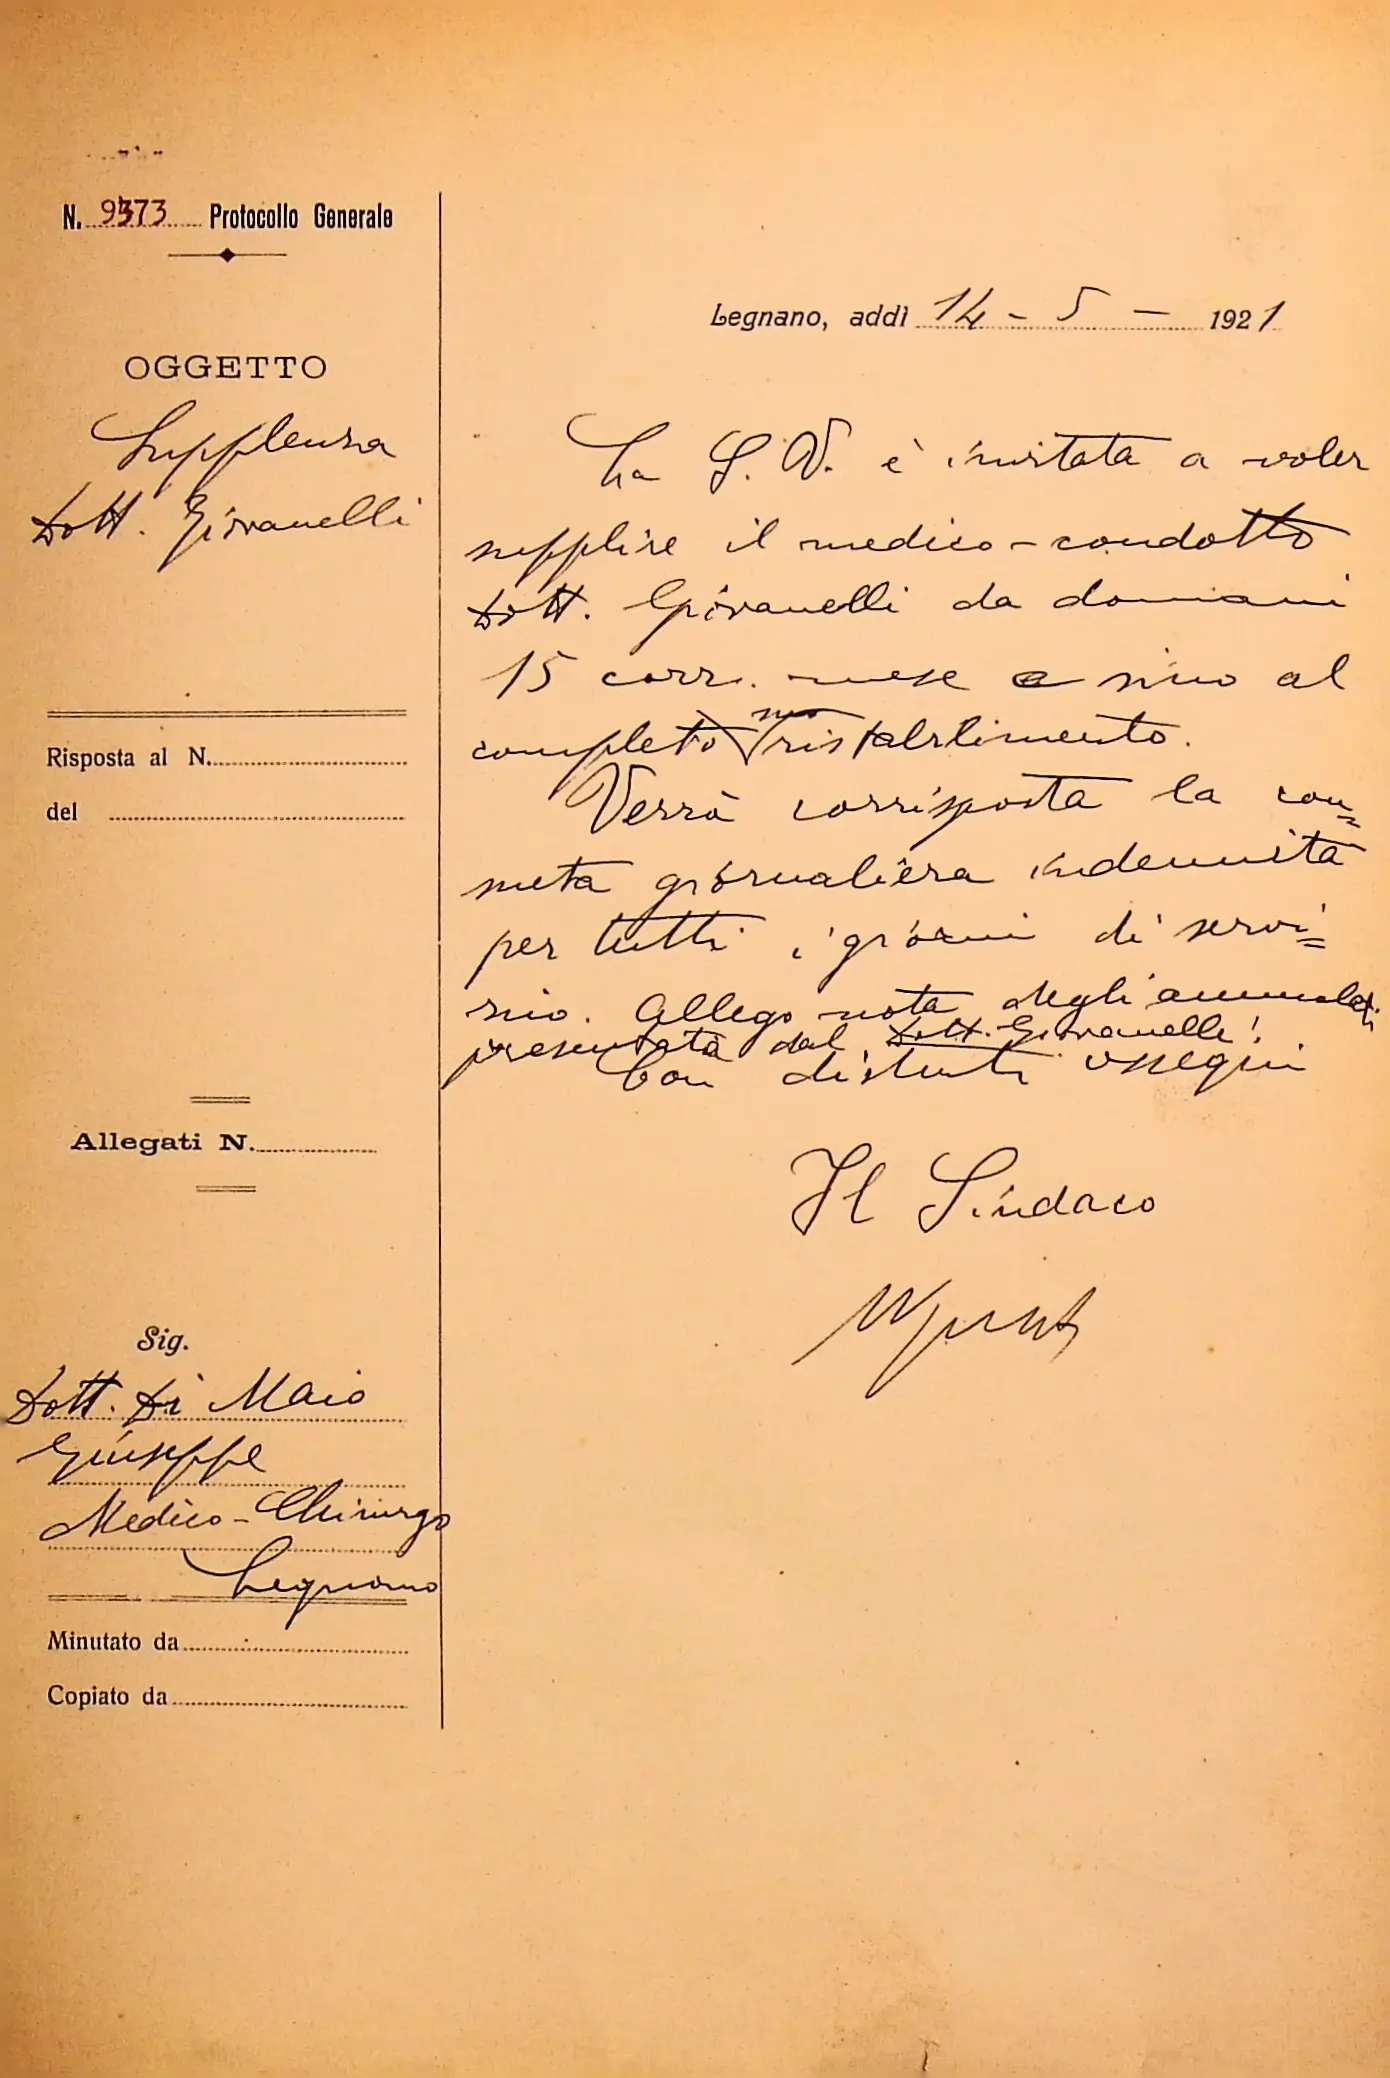 N. 9373 Protocollo Generale
OGGETTO
Supplenza
Dott. Giovanelli
Risposta al N.
del
Allegati N.
Sig.
Dott. Di Maio
Giuseppe
Medico-Chirurgo
Legnano
Minutato da
Copiato da
Legnano, addì 14 - 5 - 1921
La S. V. è invitata a voler
supplire il medico-condotto
Dott. Giovanelli da domani
15 corr. mese e sino al
completo suo ristabilimento.
Verrà corrisposta la con=
sueta giornaliera indennità
per tutti i giorni di servi=
zio. Allego nota degli ammalati
presentata dal Dott. Giovanelli.
Con distinti ossequi
Il Sindaco